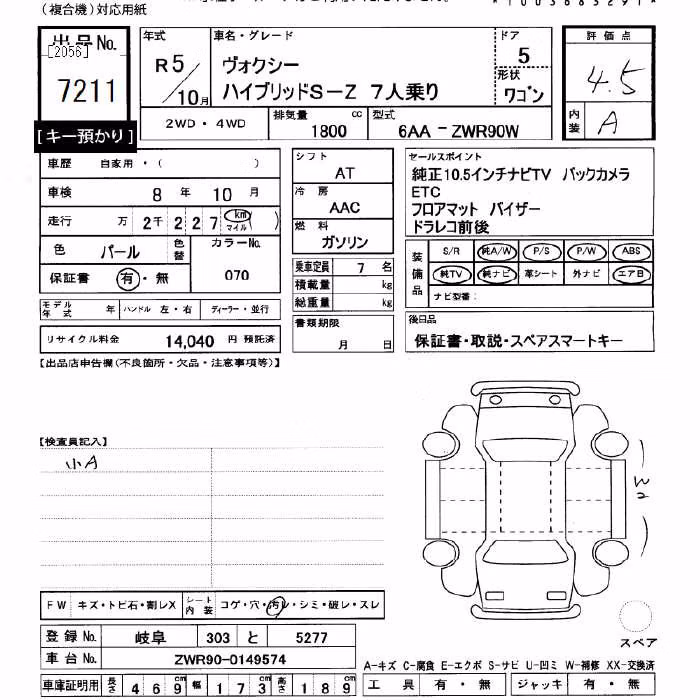 (複合機)対応用紙
出品No.
[2056]
7211
[キー預かり]
年式
R5/10月
車名・グレード
ヴォクシー
ハイブリッドS-Z 7人乗り
ドア
5
形状
ワゴン
評価点
4.5
内装
A
2WD・4WD
排気量
1800 cc
型式
6AA-ZWR90W
車歴 自家用・( )
車検 8年 10月
走行 万 2千 2 2 7 km マイル ( )
色 パール 色替
カラーNo.
070
保証書 有・無
モデル年式 年 ハンドル 左・右 ディーラー・並行
リサイクル料金 14,040 円 預託済
シフト
AT
冷房
AAC
燃料
ガソリン
乗車定員 7 名
積載量 kg
総重量 kg
書類期限
月 日
セールスポイント
純正10.5インチナビTV バックカメラ
ETC
フロアマット バイザー
ドラレコ前後
装備品
S/R 純A/W P/S P/W ABS
純TV 純ナビ 革シート 外ナビ エアB
ナビ型番:
後日品
保証書・取説・スペアスマートキー
[出品店申告欄(不良箇所・欠品・注意事項等)]
[検査員記入]
小A
FW キズ・トビ石・割レX
シート内装 コゲ・穴・汚レ・シミ・破レ・スレ
登録No. 岐阜 303 と 5277
車台No. ZWR90-0149574
車庫証明用 長さ 469cm 幅 173cm 高さ 189cm
スペア
A-キズ C-腐食 E-エクボ S-サビ U-凹ミ W-補修 XX-交換済
工具 有・無 ジャッキ 有・無